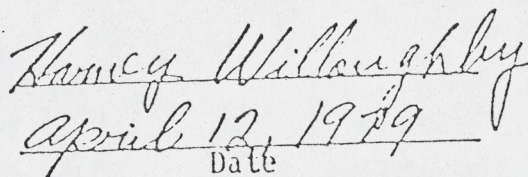 Nancy Willoughby
April 12, 1979
Date